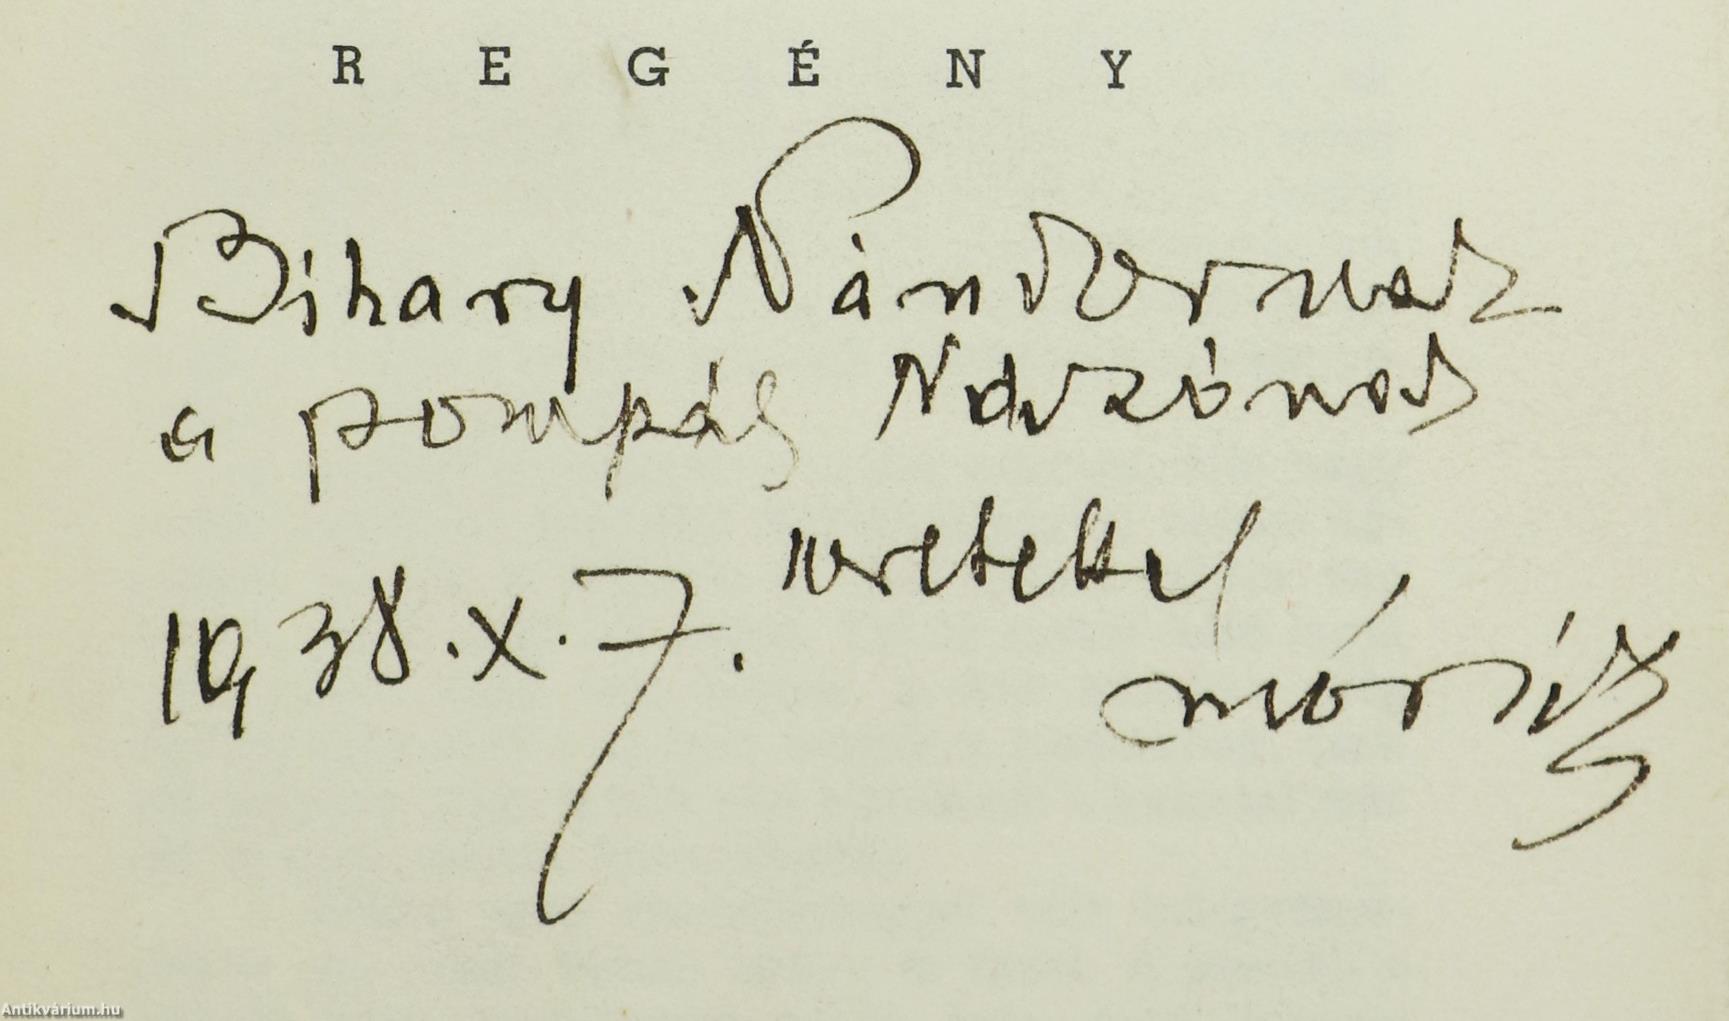 REGÉNY
Bihary Nándornak
a pompás
szeretettel
1938.X.7.
Móricz
Antikvárium.hu